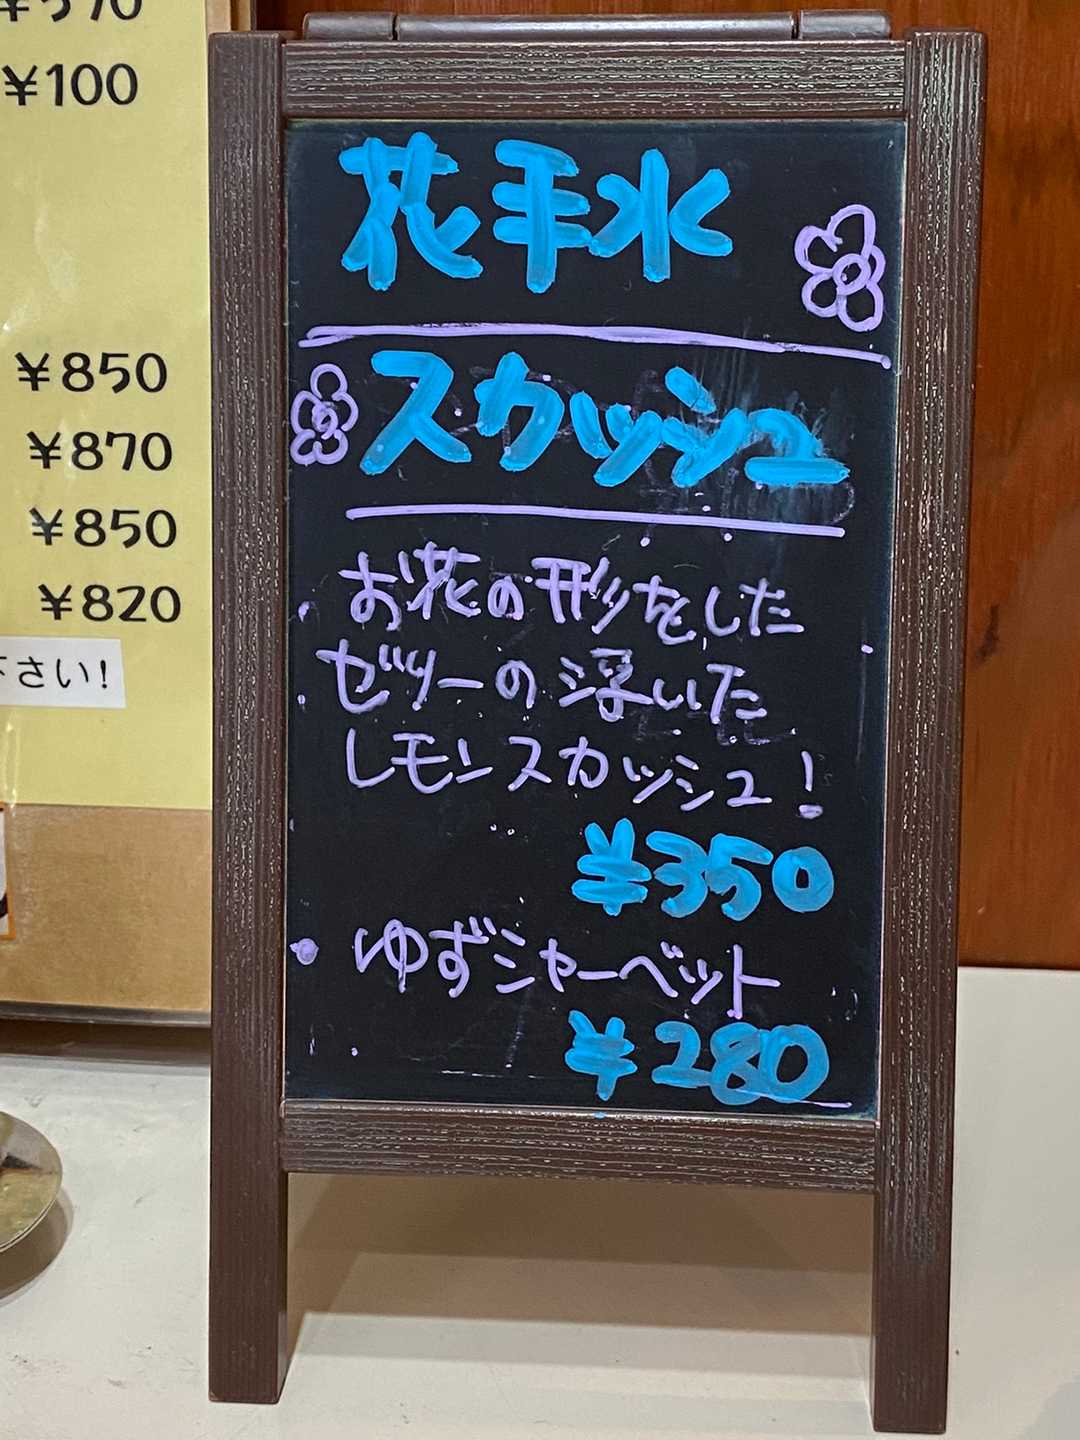 ¥100
¥850
¥870
¥850
¥820
さい!
花手水
スカッシュ
お花の形をした
ゼリーの浮いた
レモンスカッシュ!
¥350
ゆずシャーベット
¥280